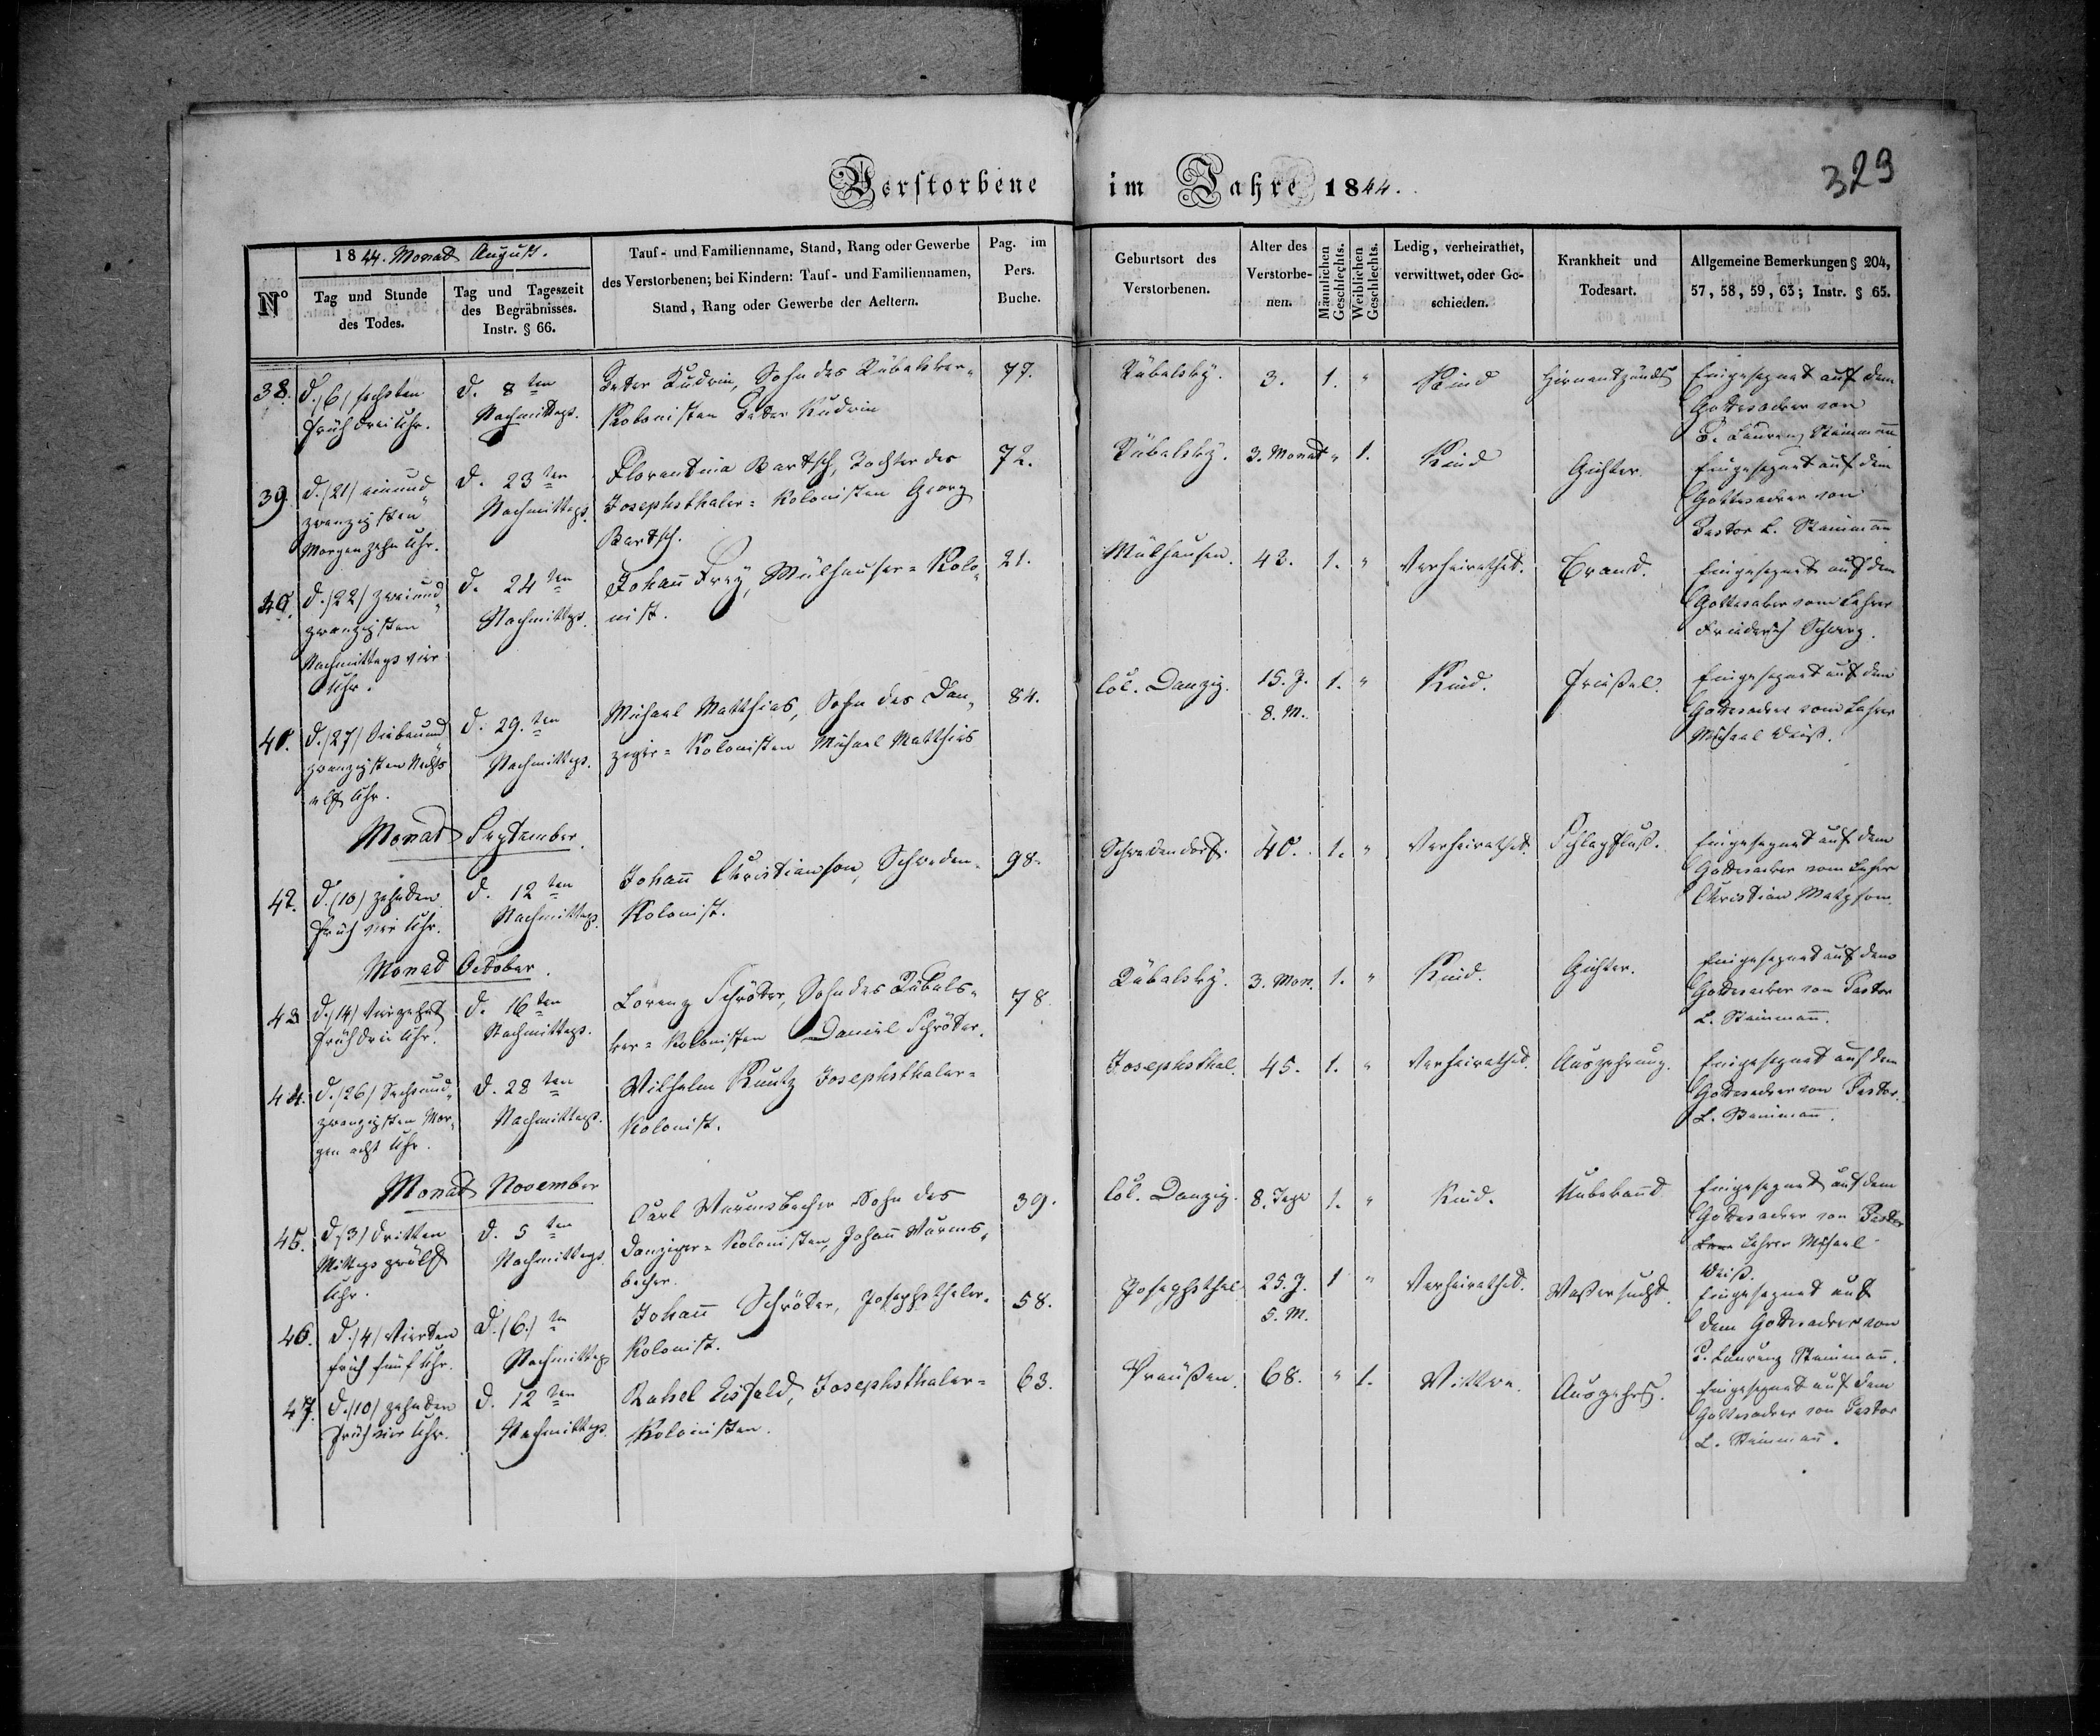 Verstorbene im Jahre 1844.
323
Nº
1844. Monad August.
Tag und Stunde
des Todes.
Tag und Tageszeit
des Begräbnisses.
Instr. § 66.
Tauf- und Familienname, Stand, Rang oder Gewerbe
des Verstorbenen; bei Kindern: Tauf- und Familiennamen,
Stand, Rang oder Gewerbe der Aeltern.
Pag. im
Pers.
Buche.
Geburtsort des
Verstorbenen.
Alter des
Verstorbe-
nen.
Männlichen
Geschlechts.
Weiblichen
Geschlechts.
Ledig, verheirathet,
verwittwet, oder Ge-
schieden.
Krankheit und
Todesart.
Allgemeine Bemerkungen § 204,
57, 58, 59, 63; Instr. § 65.
38.
d. (6) sechsten
früh drei Uhr.
d. 8ten
Nachmittags.
Peter Kudrin, Sohn des Rübalsker-
Kolonisten Peter Kudrin
77.
Rübalsky.
3.
1.
"
Kind
Hirnentzündg
Eingesegnet auf dem
Gottesacker von
P. Laurenz Steinmann
39.
d. (21) einund-
zwanzigsten
Morgen zehn Uhr.
d. 23ten
Nachmittags.
Florentina Bartsch, Tochter des
Josephsthaler-Kolonisten Georg
Bartsch.
72.
Rübalsky.
3. Monat
"
1.
Kind
Gichter
Eingesegnet auf dem
Gottesacker von
Pastor L. Steinmann
40.
d. (22) zweiund-
zwanzigsten
Nachmittags vier
Uhr.
d. 24ten
Nachmittags.
Johann Frey, Mülhauser-Kolo-
nist.
21.
Mülhausen.
43.
1.
"
Verheirathet.
Brand.
Eingesegnet auf dem
Gottesaker vom Lehrer
Friederich Schwarz.
41.
d. (27) Siebenund-
zwanzigsten Nachts
elf Uhr.
d. 29.ten
Nachmittags.
Michael Matthias, Sohn des Dan-
ziger-Kolonisten Michael Matthias
84.
Col. Danzig.
15. J.
8. M.
1.
"
Kind.
Frießel.
Eingesegnet auf dem
Gottesacker vom Lehrer
Michael Weiß.
Monat September.
42.
d. (10) zehnten
früh vier Uhr.
d. 12ten
Nachmittags.
Johann Christianson, Schweden-
Kolonist.
98.
Schwedendorf.
40.
1.
"
Verheirathet.
Schlagfluß.
Eingesegnet auf dem
Gottesacker vom Lehrer
Christian Matzson.
Monad October.
43
d. (14) Vierzehnt
früh drei Uhr.
d. 16ten
Nachmittags.
Lorenz Schröter, Sohn des Rübals-
ker-Kolonisten Daniel Schröter.
78.
Rübalsky.
3. Mon.
1.
"
Kind.
Gichter.
Eingesegnet auf dem
Gottesacker von Pastor
L. Steinmann.
44.
d. (26) Sechsund-
zwanzigsten Mor-
gen acht Uhr.
d. 28ten
Nachmittags.
Wilhelm Kuntz Josephsthaler-
Kolonist.
Josephsthal.
45.
1.
"
Verheirathet.
Auszehrung.
Eingesegnet auf dem
Gottesacker von Pastor.
L. Steinmann.
Monat November
45.
d. (3) dritten
Mittags zwölf
Uhr.
d. 5ten
Nachmittags.
Carl Wurmsbecher Sohn des
Danziger-Kolonisten, Johann Wurms-
becher.
39.
Col. Danzig.
8. Tage
1.
"
Kind.
Unbekannt
Eingesegnet auf dem
Gottesacker von Pastor
Lehrer Michael
Weiß.
46.
d. (4) Vierten
früh fünf Uhr.
d. (6.)ten
Nachmittags
Johann Schröter, Josephsthaler-
Kolonist.
58.
Josephsthal
25. J.
5. M.
1
"
Verheirathet.
Waßersucht.
Eingesegnet auf
dem Gottesacker von
P. Laurenz Steinmann.
47.
d. (10) zehnten
früh vier Uhr.
d. 12ten
Nachmittags.
Rahel Eisfeld, Josephsthaler-
Kolonisten.
63.
Preußen.
68.
"
1.
Wittwe.
Auszehrg.
Eingesegnet auf dem
Gottesacker von Pastor
L. Steinmann.